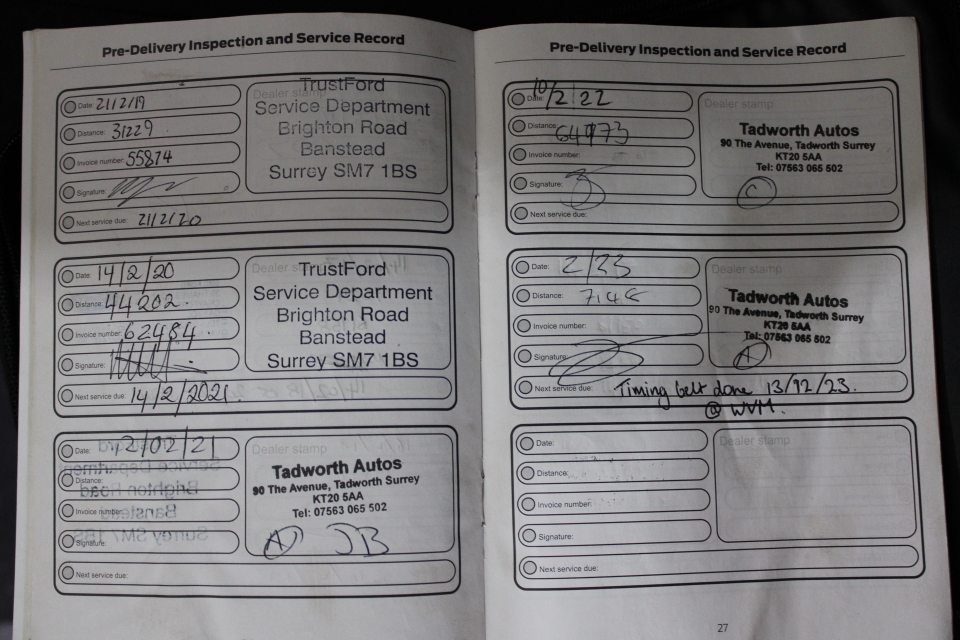 Pre-Delivery Inspection and Service Record
Date: 21/2/19
Distance: 31229
Invoice number: 55874
Signature:
Next service due: 21/2/20
Dealer stamp
TrustFord
Service Department
Brighton Road
Banstead
Surrey SM7 1BS
Date: 14/2/20
Distance: 44202.
Invoice number: 62484.
Signature:
Next service due: 14/2/2021.
Dealer stamp
TrustFord
Service Department
Brighton Road
Banstead
Surrey SM7 1BS
Date: 12/02/21
Distance:
Invoice number:
Signature:
Next service due:
Dealer stamp
Tadworth Autos
90 The Avenue, Tadworth Surrey
KT20 5AA
Tel: 07563 065 502
A JB
Pre-Delivery Inspection and Service Record
Date: 10/2/22
Distance: 64973
Invoice number:
Signature:
Next service due:
Dealer stamp
Tadworth Autos
90 The Avenue, Tadworth Surrey
KT20 5AA
Tel: 07563 065 502
C
Date: 2/23
Distance:
Invoice number:
Signature:
Next service due: Timing belt done 13/12/23.
@ WVM.
Dealer stamp
Tadworth Autos
90 The Avenue, Tadworth Surrey
KT20 5AA
Tel: 07563 065 502
A
Date:
Distance:
Invoice number:
Signature:
Next service due:
Dealer stamp
27